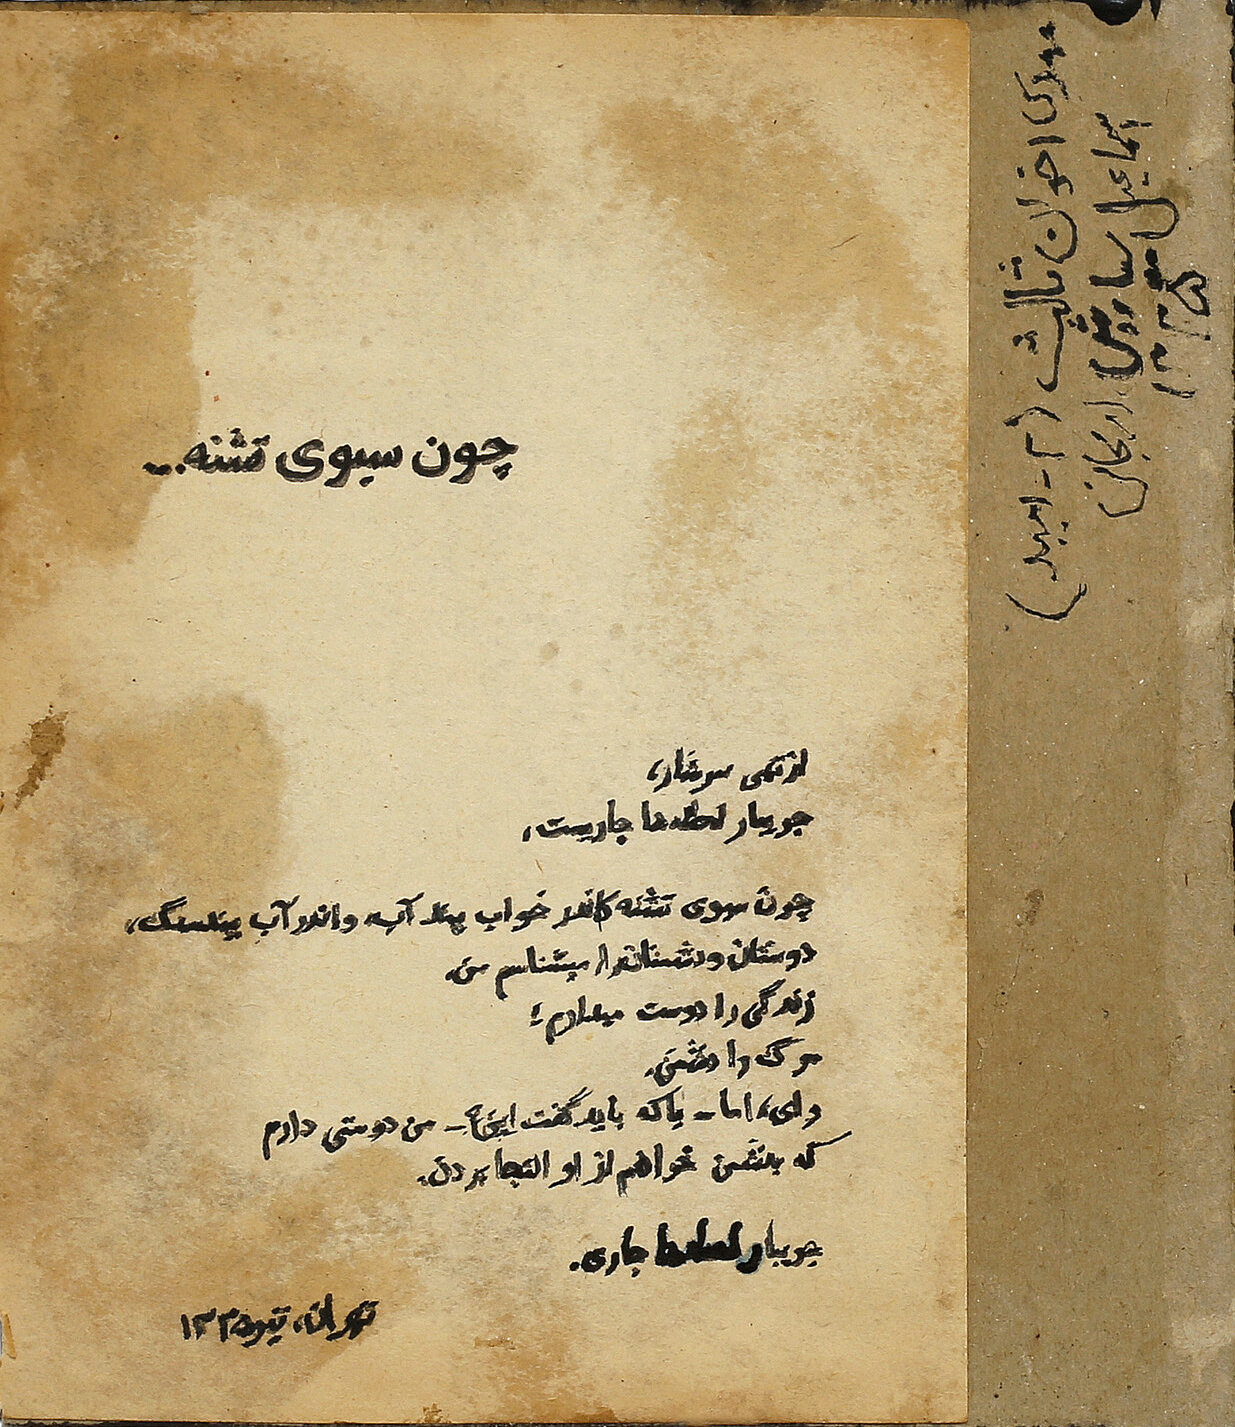 چون سبوی تشنه...
از تهی سرشار،
جویبار لحظه‌ها جاریست،
چون سبوی تشنه کاندر خواب بیند آب، و اندر آب بیند سنگ،
دوستان و دشمنانرا میشناسم من.
زندگی را دوست میدارم؛
مرگ را دشمن.
وای، اما ـ با که باید گفت این؟ ـ من دوستی دارم
که بدشمن خواهم از او التجا بردن.
جویبار لحظه‌ها جاری.
تهران، تیر ۱۳۳۵
مهدی اخوان ثالث (م - امید)
اسماعیل
۱۳۳۵